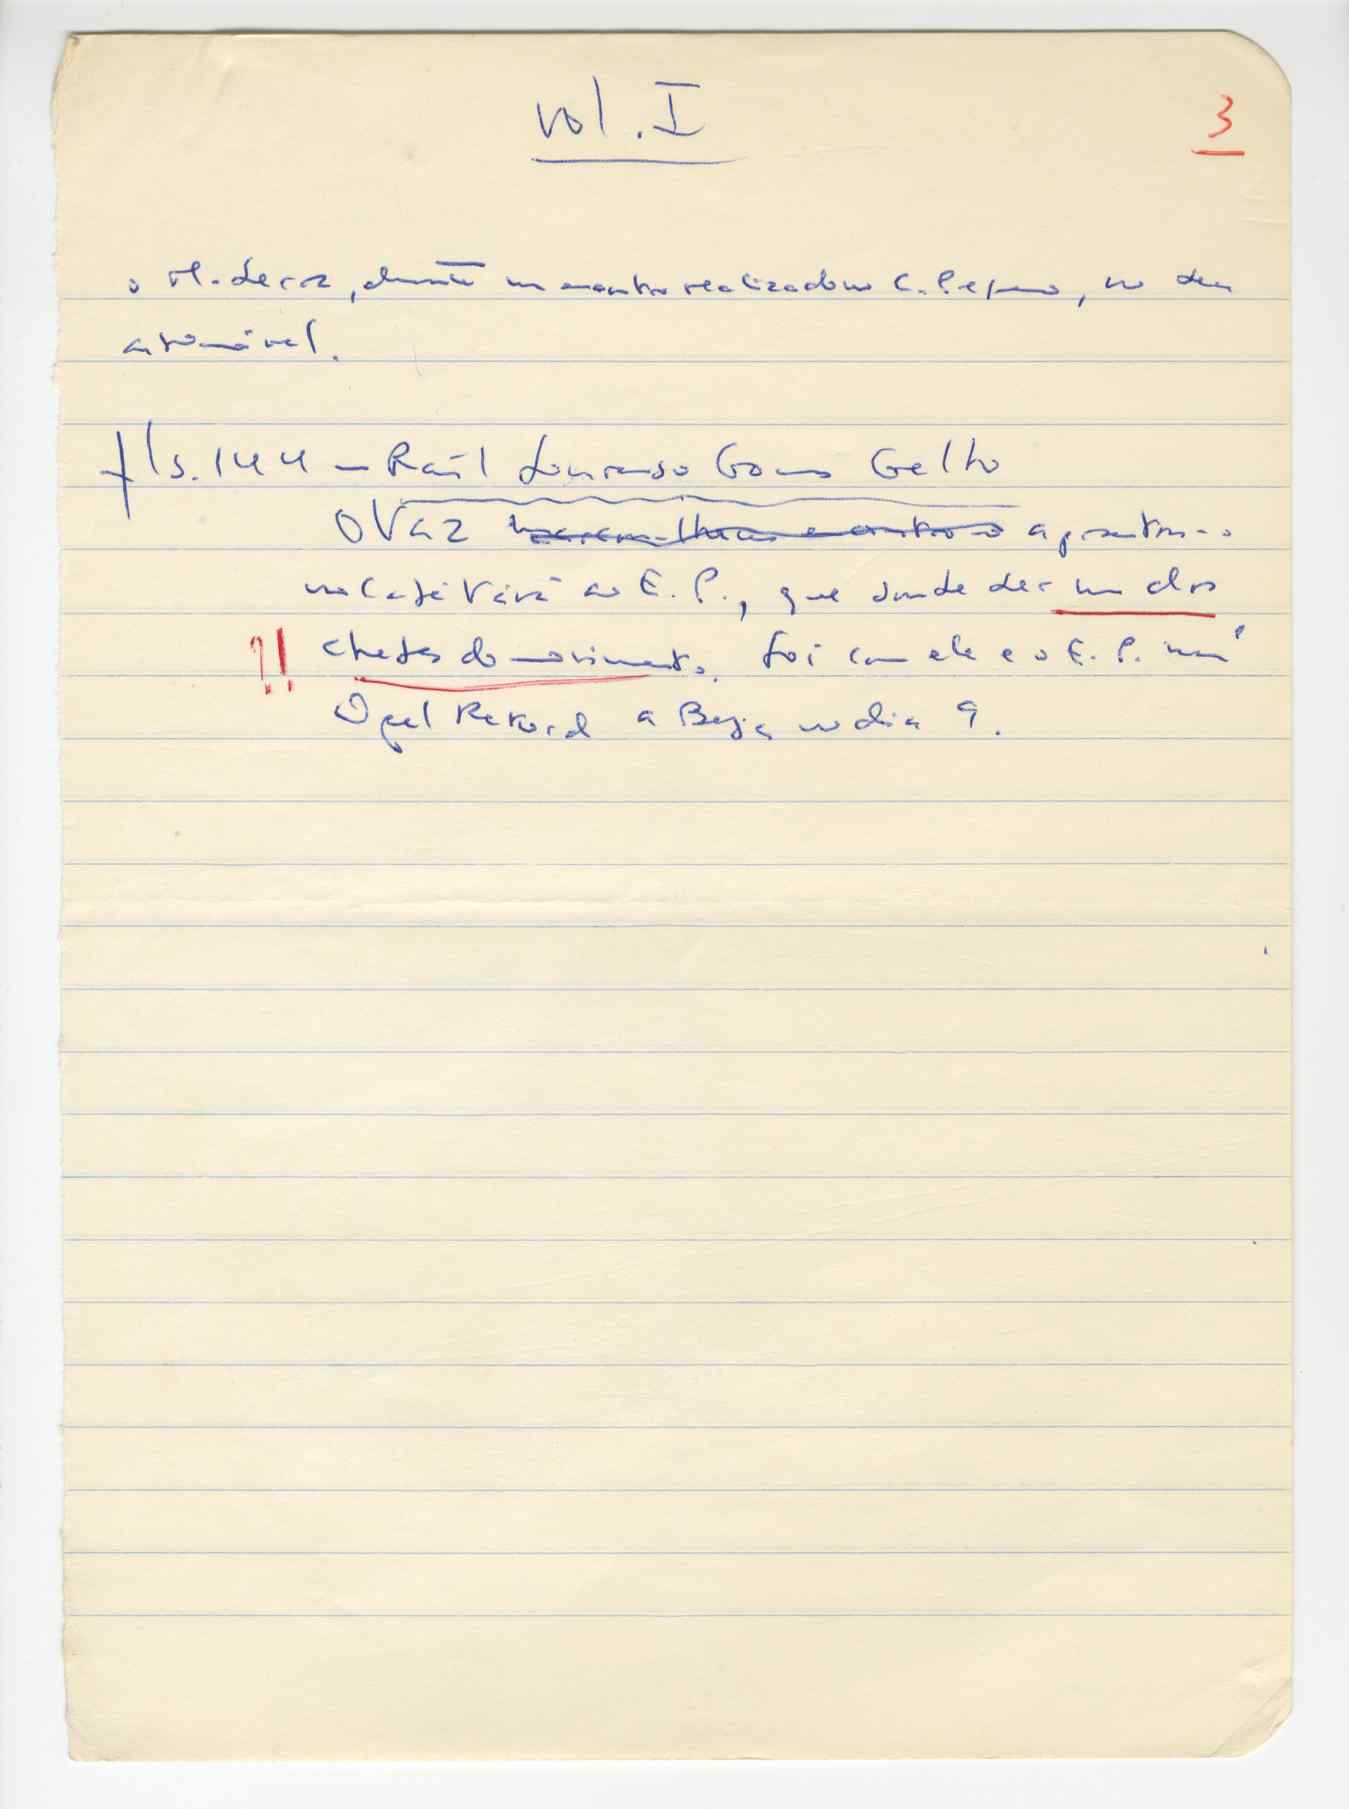 vol. I
3
o M. Serra, durante um encontro realizado no C. Pequeno, no seu
automóvel.
fls. 144 - Raúl Lourenço Gomes Gelho
O Vaz apresentou-o
no Café Vává ao E. P., que soube ser um dos
!! chefes do movimento. Foi com ele e o E. P. num
Opel Rekord a Beja no dia 9.